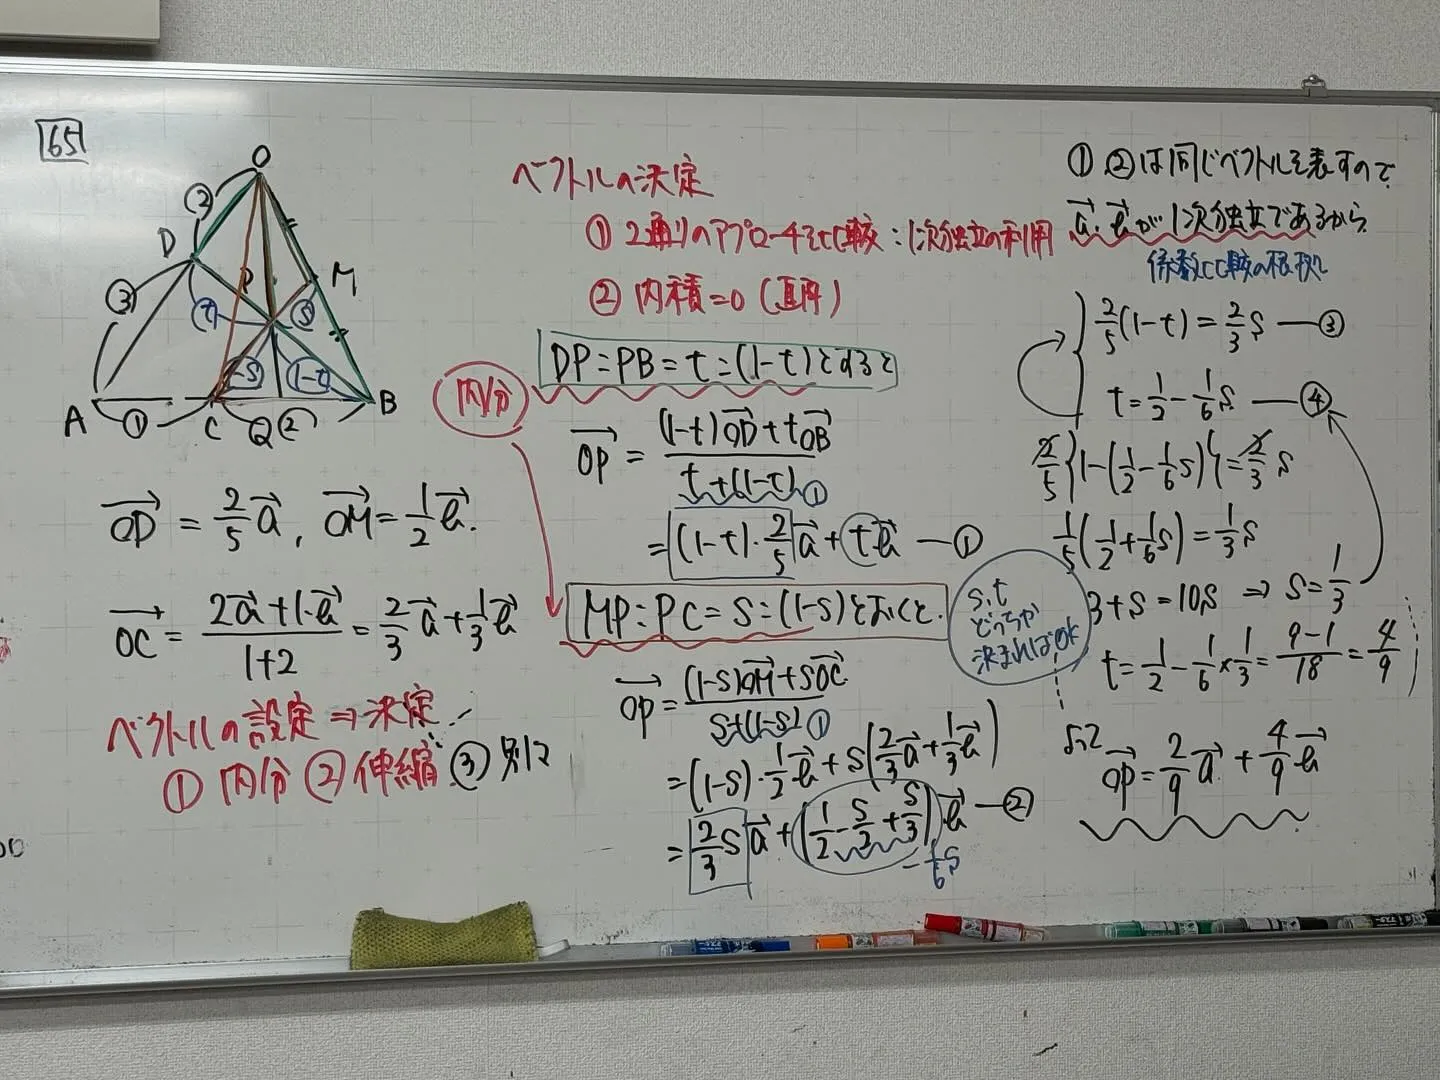 65
O
②
D
P
M
③
⑦
⑤
1-S
1-t
A
①
C
Q
②
B
→OD = 2/5 →a, →OM = 1/2 →b.
→OC = (2→a+1・→b)/(1+2) = 2/3 →a + 1/3 →b
ベクトルの設定 ⇒ 決定
① 内分 ② 伸縮 ③ 別に
ベクトルの決定
① 2通りのアプローチで比較:1次独立の利用
② 内積=0 (直角)
内分
DP:PB = t:(1-t)とすると
→OP = ((1-t)→OD + t→OB)/(t+(1-t)) ①
= (1-t)・2/5 →a + t→b ―①
MP:PC = S:(1-S)とおくと.
→OP = ((1-S)→OM + S→OC)/(S+(1-S)) ①
= (1-S)・1/2 →b + S(2/3 →a + 1/3 →b)
= 2/3 S →a + (1/2 - S/2 + S/3) →b ―②
-1/6 S
S,t
どっちか
決まればOK
① ②は同じベクトルを表すので
→a, →bが1次独立であるから
係数比較の根拠
2/5(1-t) = 2/3 S ―③
t = 1/2 - 1/6 S ―④
2/5{1-(1/2 - 1/6 S)} = 2/3 S
1/5(1/2 + 1/6 S) = 1/3 S
3+S = 10S ⇒ S = 1/3
t = 1/2 - 1/6 × 1/3 = (9-1)/18 = 4/9
よって →OP = 2/9 →a + 4/9 →b